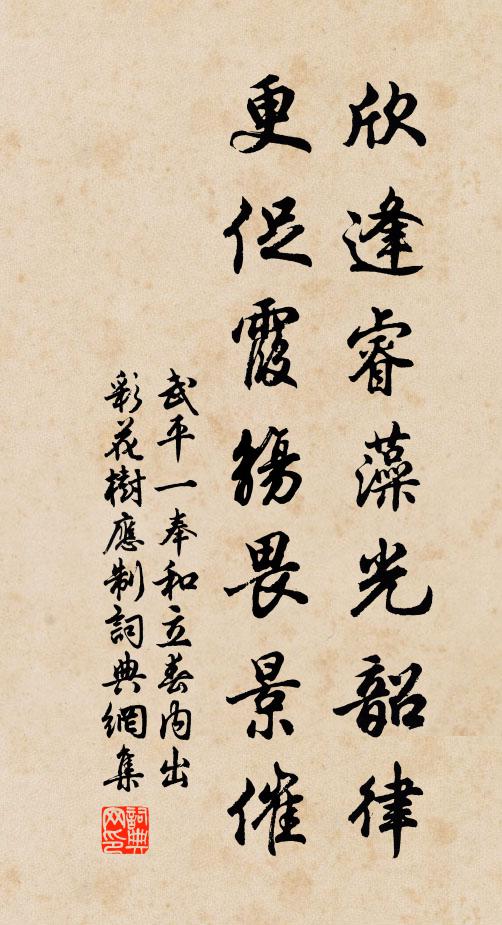 欣逢睿藻光韶律
更促霞觴畏景催
武平一奉和立春內出
彩花樹應制詞典網集
詞典网印